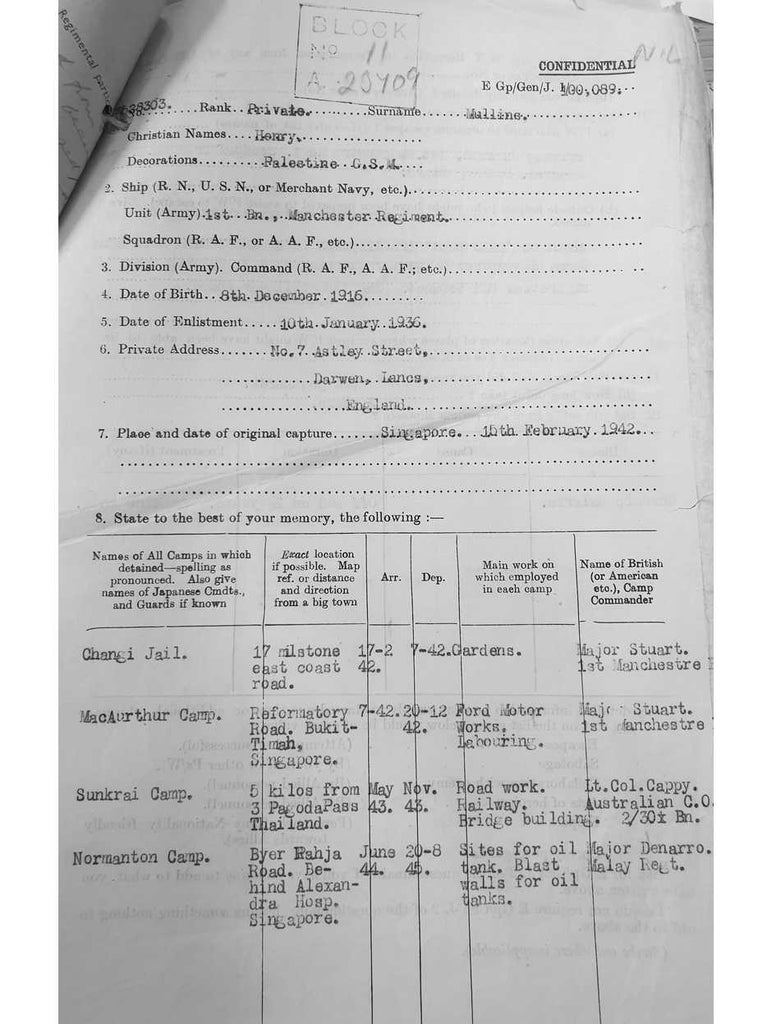 Regimental
BLOCK
No 11
A 23709
CONFIDENTIAL
E Gp/Gen/J. 100,089.
38303. Rank. Private. Surname. Mullins.
Christian Names. Henry.
Decorations. Palestine G.S.M.
2. Ship (R. N., U. S. N., or Merchant Navy, etc.)
Unit (Army) 1st Bn., Manchester Regiment.
Squadron (R. A. F., or A. A. F., etc.)
3. Division (Army). Command (R. A. F., A. A. F.; etc.)
4. Date of Birth. 8th December 1916.
5. Date of Enlistment. 10th January 1936.
6. Private Address. No.7 Astley Street,
Darwen, Lancs,
England.
7. Place and date of original capture. Singapore. 15th February 1942.
8. State to the best of your memory, the following :—
Names of All Camps in which detained—spelling as pronounced. Also give names of Japanese Cmdts., and Guards if known
Exact location if possible. Map ref. or distance and direction from a big town
Arr.
Dep.
Main work on which employed in each camp
Name of British (or American etc.), Camp Commander
Changi Jail. 17 milstone 17-2 7-42. Gardens. Major Stuart.
east coast 42. 1st Manchestre
road.
MacAurthur Camp. Reformatory 7-42. 20-12 Ford Motor Major Stuart.
Road. Bukit- 42. Works. 1st Manchestre
Timah, Labouring.
Singapore.
Sunkrai Camp. 5 kilos from May Nov. Road work. Lt.Col.Cappy.
3 PagodaPass 43. 43. Railway. Australian C.O.
Thailand. Bridge building. 2/30t Bn.
Normanton Camp. Byer Rahja June 20-8 Sites for oil Major Denarro.
Road. Be- 44. 45. tank. Blast Malay Regt.
hind Alexan- walls for oil
dra Hosp. tanks.
Singapore.